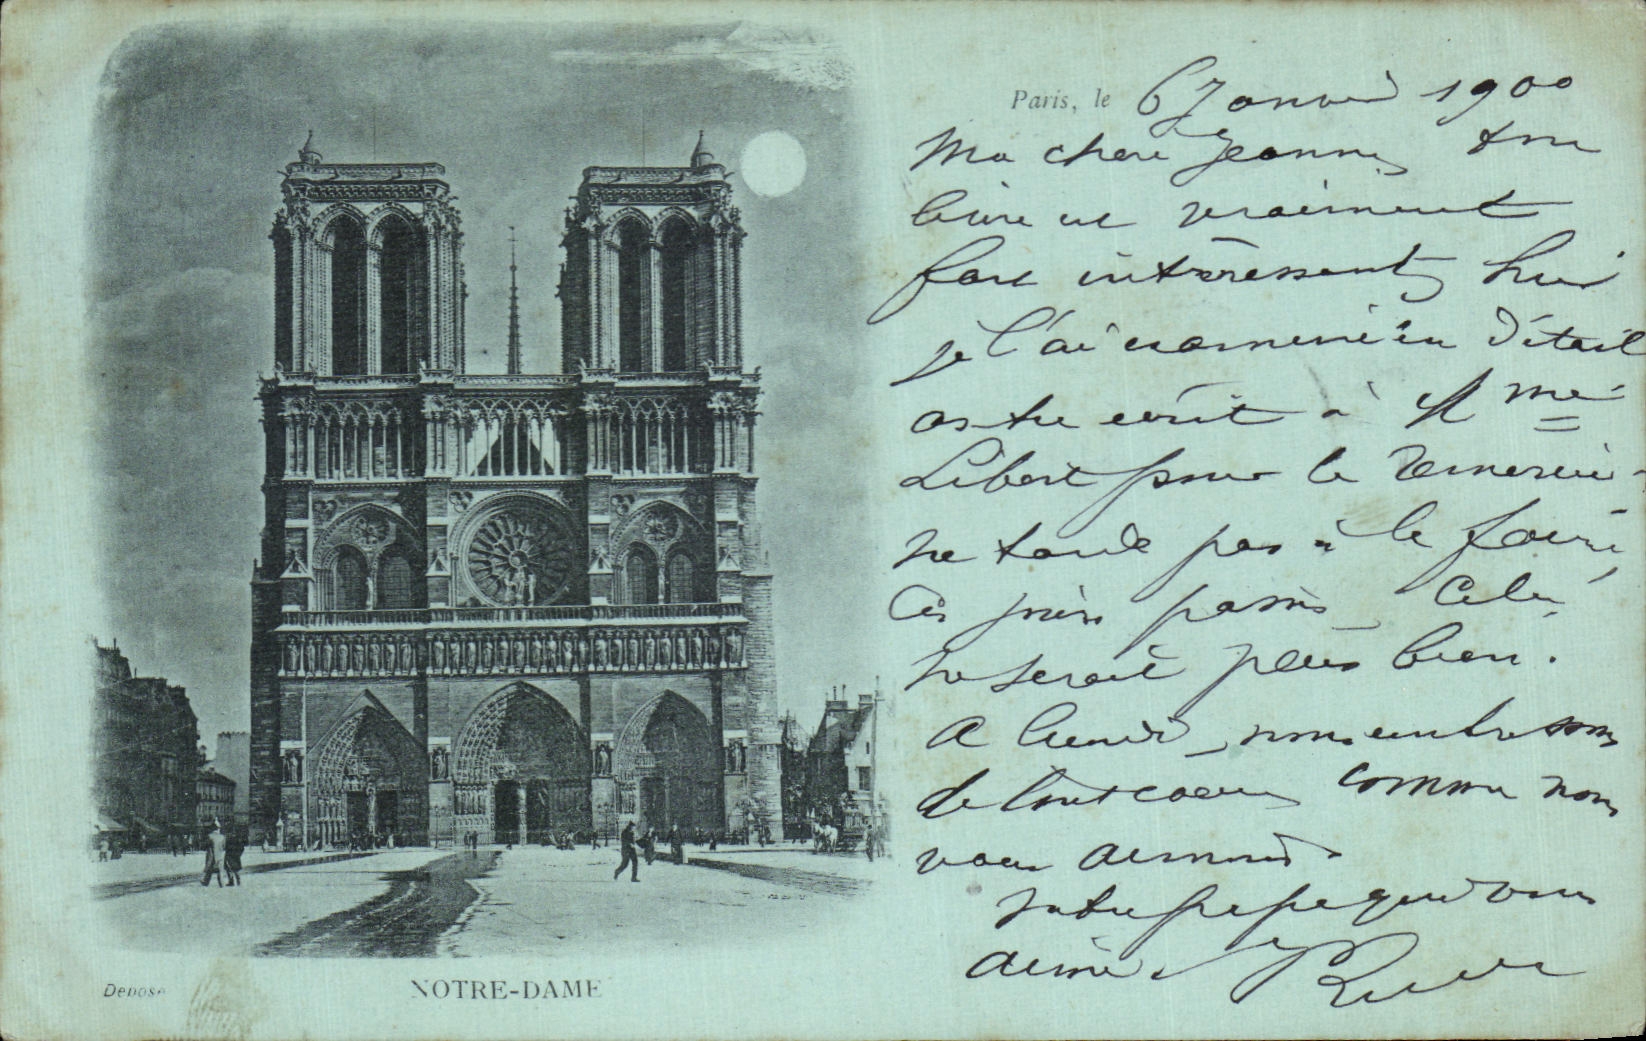 Paris, le 6 Janvier 1900
Ma chère Jeanne, ton
livre est vraiment
fort intéressant, hier
je l'ai examiné en détail
écrit à Mme
Libert pour la remercier
ne tarde pas à le faire,
Ces jours passés Cela
ne serait plus bien.
A bientôt, nous embrassons
de tout coeur comme nous
vous aimons.
Votre pepe qui vous
aime
Déposé
NOTRE-DAME